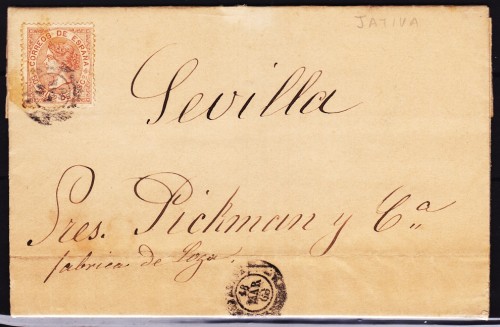 JATIVA
CORREOS DE ESPAÑA
Sevilla
Sres. Pickman y Cª
fabrica de Loza.
18
MAR